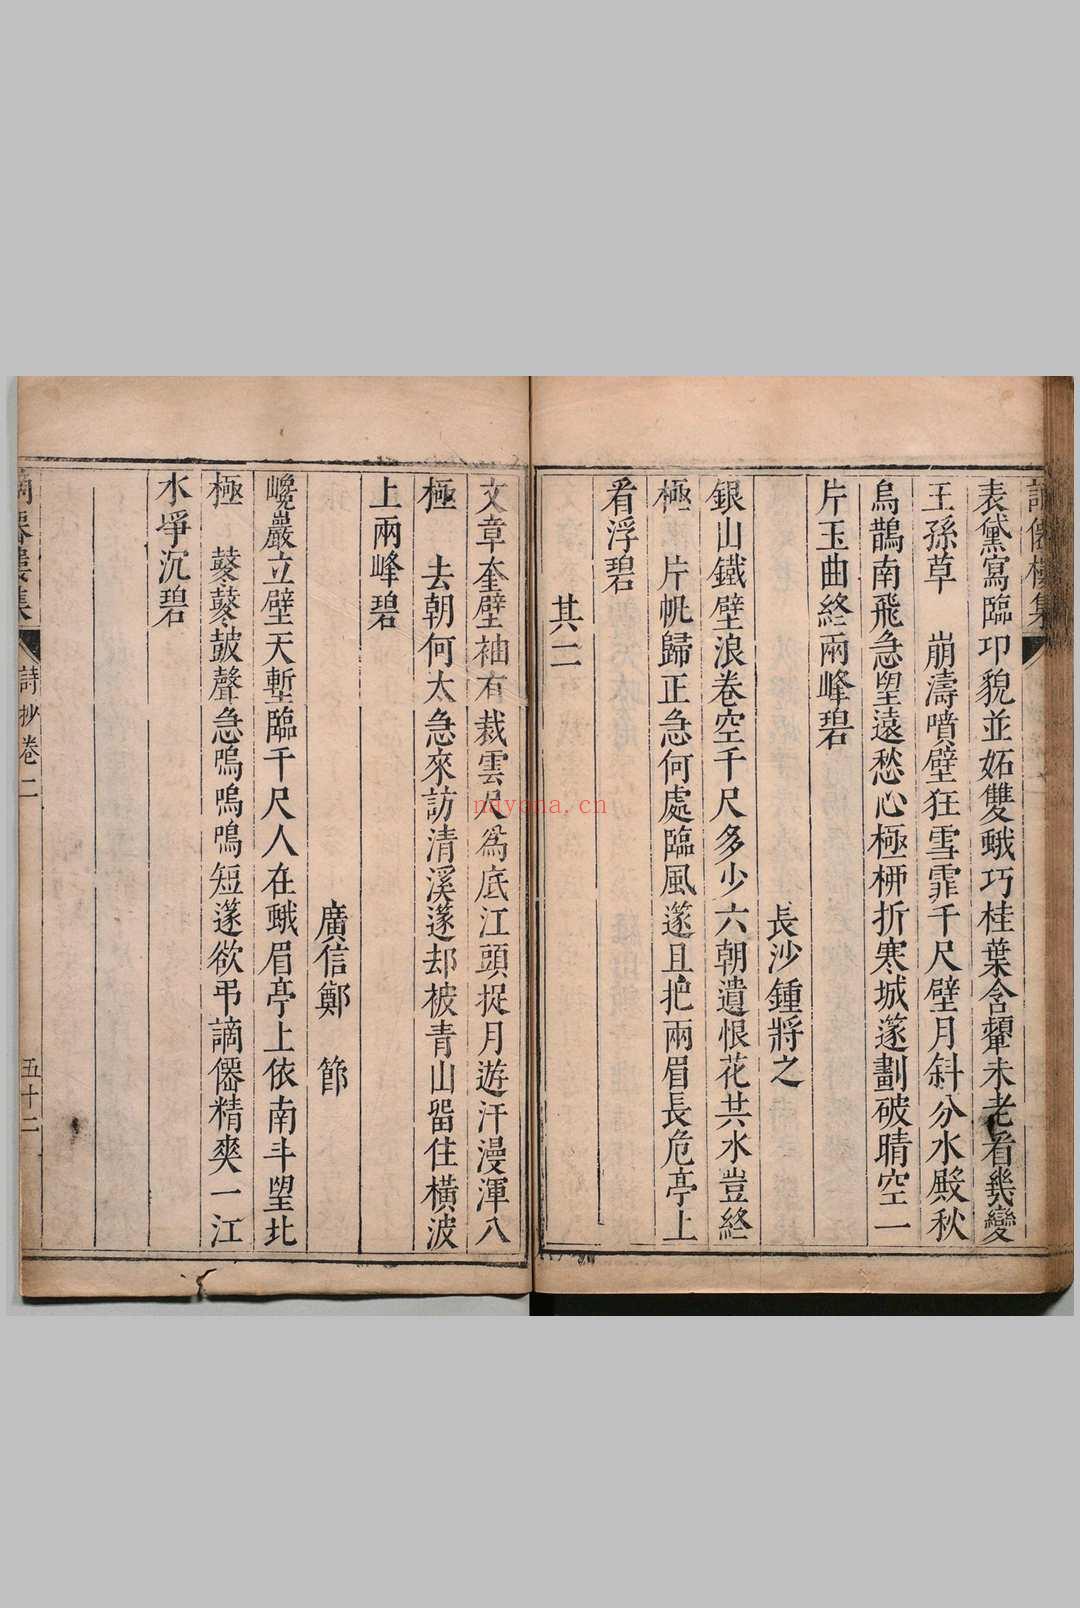 謫僊樓集
表黛寫臨卭貌並妬雙蛾巧桂葉含顰未老看幾變
王孫草　崩濤噴壁狂雪霏千尺壁月斜分水殿秋
烏鵲南飛急望遠愁心極栁折寒城邃劃破晴空一
片玉曲終兩峰碧
長沙鍾將之
銀山鐵壁浪卷空千尺多少六朝遺恨花共水豈終
極　片帆歸正急何處臨風邃且把兩眉長危亭上
看浮碧
其二
文章奎壁袖有裁雲尺為底江頭捉月遊汗漫渾八
極　去朝何太急來訪清溪邃却被青山畱住橫波
上兩峰碧
廣信鄭　節
巉巖立壁天塹臨千尺人在蛾眉亭上依南斗望北
極　鼕鼕皷聲急嗚嗚鳴短邃欲弔謫僊精爽一江
水爭沉碧
謫僊樓集
詩抄卷二
五十二
nayona.cn